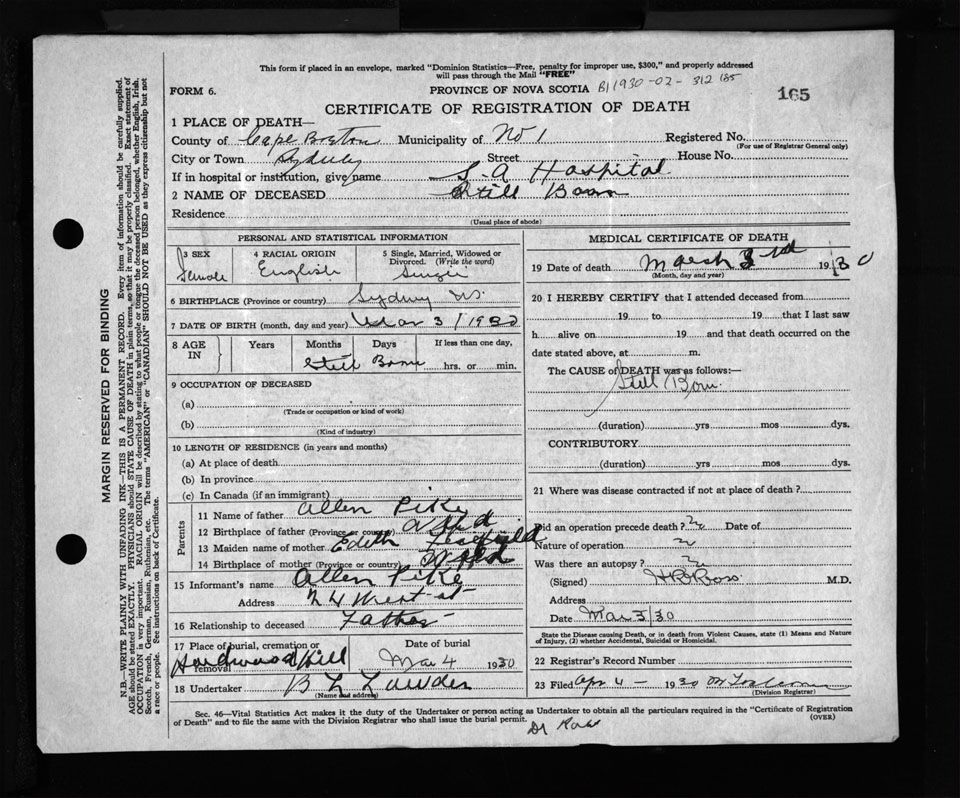 This form if placed in an envelope, marked "Dominion Statistics—Free, penalty for improper use, $300," and properly addressed
will pass through the Mail "FREE"
FORM 6.
PROVINCE OF NOVA SCOTIA B/1930-02-312 185
165
CERTIFICATE OF REGISTRATION OF DEATH
1 PLACE OF DEATH—
County of Cape Breton Municipality of No 1 Registered No.
(For use of Registrar General only)
City or Town Sydney Street House No.
If in hospital or institution, give name S-A Hospital
2 NAME OF DECEASED Still Born
Residence
(Usual place of abode)
PERSONAL AND STATISTICAL INFORMATION
3 SEX Female
4 RACIAL ORIGIN English
5 Single, Married, Widowed or Divorced. (Write the word) Single
6 BIRTHPLACE (Province or country) Sydney NS.
7 DATE OF BIRTH (month, day and year) Mar 3/1930
8 AGE IN Years Months Days If less than one day, hrs. or min.
Still Born
9 OCCUPATION OF DECEASED
(a)
(Trade or occupation or kind of work)
(b)
(Kind of industry)
10 LENGTH OF RESIDENCE (in years and months)
(a) At place of death
(b) In province
(c) In Canada (if an immigrant)
Parents
11 Name of father Allen Pike
12 Birthplace of father (Province or country) Nfld
13 Maiden name of mother Edith
14 Birthplace of mother (Province or country) Nfld
15 Informant's name Allen Pike
Address West st
16 Relationship to deceased Father
17 Place of burial, cremation or removal Hardwood Hill
Date of burial Mar 4 1930
18 Undertaker B L Lawder
(Name and address)
MEDICAL CERTIFICATE OF DEATH
19 Date of death March 3rd 1930
(Month, day and year)
20 I HEREBY CERTIFY that I attended deceased from
19 to 19 that I last saw
h alive on 19 and that death occurred on
date stated above, at m.
The CAUSE of DEATH was as follows:—
Still Born.
(duration) yrs mos dys.
CONTRIBUTORY
(duration) yrs mos dys.
21 Where was disease contracted if not at place of death?
Did an operation precede death? Date of
Nature of operation
Was there an autopsy?
(Signed) H R Ross. M.D.
Address
Date Mar 3/30
State the Disease causing Death, or in death from Violent Causes, state (1) Means and Nature
of Injury, (2) whether Accidental, Suicidal or Homicidal.
22 Registrar's Record Number
23 Filed Apr 4 - 1930
(Division Registrar)
Sec. 46—Vital Statistics Act makes it the duty of the Undertaker or person acting as Undertaker to obtain all the particulars required in the "Certificate of Registration
of Death" and to file the same with the Division Registrar who shall issue the burial permit.
(OVER)
Dr Ross
MARGIN RESERVED FOR BINDING
N.B.—WRITE PLAINLY WITH UNFADING INK—THIS IS A PERMANENT RECORD. Every item of information should be carefully supplied.
AGE should be stated EXACTLY. PHYSICIANS should STATE CAUSE OF DEATH in plain terms, so that it may be properly classified. Exact statement of
OCCUPATION is very important. RACIAL ORIGIN will be described by stating to what people or tongue the deceased person belonged, whether English, Irish,
Scotch, French, German, Russian, Ruthenian, etc. The terms "AMERICAN" or "CANADIAN" SHOULD NOT BE USED as they express citizenship but not
a race or people. See instructions on back of Certificate.